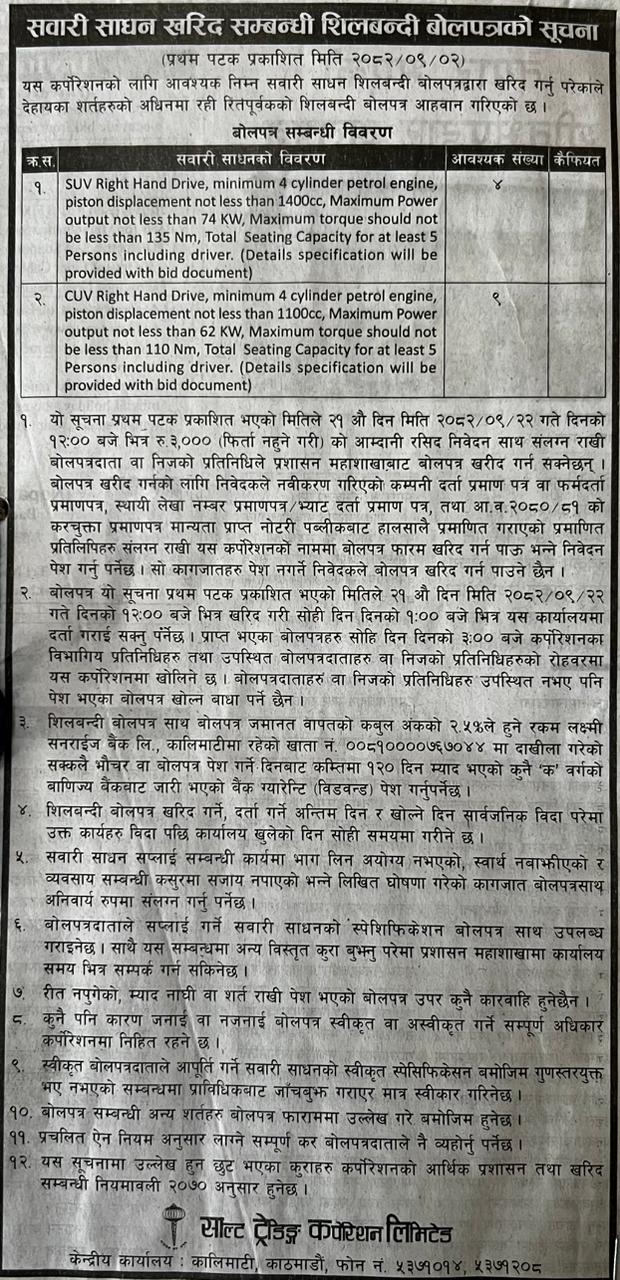 सवारी साधन खरिद सम्बन्धी शिलबन्दी बोलपत्रको सूचना
(प्रथम पटक प्रकाशित मिति २०८२/०९/०२)
यस कर्पोरेशनको लागि आवश्यक निम्न सवारी साधन शिलबन्दी बोलपत्रद्वारा खरिद गर्नु परेकाले
देहायका शर्तहरुको अधिनमा रही रितपूर्वकको शिलबन्दी बोलपत्र आहवान गरिएको छ ।
बोलपत्र सम्बन्धी विवरण
क्र.स. सवारी साधनको विवरण आवश्यक संख्या कैफियत
१. SUV Right Hand Drive, minimum 4 cylinder petrol engine, ४
piston displacement not less than 1400cc, Maximum Power
output not less than 74 KW, Maximum torque should not
be less than 135 Nm, Total Seating Capacity for at least 5
Persons including driver. (Details specification will be
provided with bid document)
२. CUV Right Hand Drive, minimum 4 cylinder petrol engine, ९
piston displacement not less than 1100cc, Maximum Power
output not less than 62 KW, Maximum torque should not
be less than 110 Nm, Total Seating Capacity for at least 5
Persons including driver. (Details specification will be
provided with bid document)
१. यो सूचना प्रथम पटक प्रकाशित भएको मितिले २१ औ दिन मिति २०८२/०९/२२ गते दिनको
१२:०० बजे भित्र रु.३,००० (फिर्ता नहुने गरी) को आम्दानी रसिद निवेदन साथ संलग्न राखी
बोलपत्रदाता वा निजको प्रतिनिधिले प्रशासन महाशाखाबाट बोलपत्र खरीद गर्न सक्नेछन् ।
बोलपत्र खरीद गर्नको लागि निवेदकले नवीकरण गरिएको कम्पनी दर्ता प्रमाण पत्र वा फर्मदर्ता
प्रमाणपत्र, स्थायी लेखा नम्बर प्रमाणपत्र/भ्याट दर्ता प्रमाण पत्र, तथा आ.व.२०८०/८१ को
करचुक्ता प्रमाणपत्र मान्यता प्राप्त नोटरी पब्लीकबाट हालसालै प्रमाणित गराएको प्रमाणित
प्रतिलिपिहरु संलग्न राखी यस कर्पोरेशनको नाममा बोलपत्र फारम खरिद गर्न पाऊ भन्ने निवेदन
पेश गर्नु पर्नेछ । सो कागजातहरु पेश नगर्ने निवेदकले बोलपत्र खरिद गर्न पाउने छैन ।
२. बोलपत्र यो सूचना प्रथम पटक प्रकाशित भएको मितिले २१ औ दिन मिति २०८२/०९/२२
गते दिनको १२:०० बजे भित्र खरिद गरी सोही दिन दिनको १:०० बजे भित्र यस कार्यालयमा
दर्ता गराई सक्नु पर्नेछ । प्राप्त भएका बोलपत्रहरु सोहि दिन दिनको ३:०० बजे कर्पोरेशनका
विभागिय प्रतिनिधिहरु तथा उपस्थित बोलपत्रदाताहरु वा निजको प्रतिनिधिहरुको रोहवरमा
यस कर्पोरेशनमा खोलिने छ । बोलपत्रदाताहरु वा निजको प्रतिनिधिहरु उपस्थित नभए पनि
पेश भएका बोलपत्र खोल्न बाधा पर्ने छैन ।
३. शिलबन्दी बोलपत्र साथ बोलपत्र जमानत वापतको कबुल अंकको २.५%ले हुने रकम लक्ष्मी
सनराईज बैंक लि., कालिमाटीमा रहेको खाता नं. ००८१००००७६७०४४ मा दाखीला गरेको
सक्कलै भौचर वा बोलपत्र पेश गर्ने दिनबाट कम्तिमा १२० दिन म्याद भएको कुनै 'क' वर्गको
बाणिज्य बैंकबाट जारी भएको बैंक ग्यारेन्टि (विडवन्ड) पेश गर्नुपर्नेछ ।
४. शिलबन्दी बोलपत्र खरिद गर्ने, दर्ता गर्ने अन्तिम दिन र खोल्ने दिन सार्वजनिक विदा परेमा
उक्त कार्यहरु विदा पछि कार्यालय खुलेको दिन सोही समयमा गरीने छ ।
५. सवारी साधन सप्लाई सम्बन्धी कार्यमा भाग लिन अयोग्य नभएको, स्वार्थ नबाझीएको र
व्यवसाय सम्बन्धी कसुरमा सजाय नपाएको भन्ने लिखित घोषणा गरेको कागजात बोलपत्रसाथ
अनिवार्य रुपमा संलग्न गर्नु पर्नेछ ।
६. बोलपत्रदाताले सप्लाई गर्ने सवारी साधनको स्पेशिफिकेशन बोलपत्र साथ उपलब्ध
गराइनेछ । साथै यस सम्बन्धमा अन्य विस्तृत कुरा बुझ्नु परेमा प्रशासन महाशाखामा कार्यालय
समय भित्र सम्पर्क गर्न सकिनेछ ।
७. रीत नपुगेको, म्याद नाघी वा शर्त राखी पेश भएको बोलपत्र उपर कुनै कारवाहि हुनेछैन ।
८. कुनै पनि कारण जनाई वा नजनाई बोलपत्र स्वीकृत वा अस्वीकृत गर्ने सम्पूर्ण अधिकार
कर्पोरेशनमा निहित रहने छ ।
९. स्वीकृत बोलपत्रदाताले आपूर्ति गर्ने सवारी साधनको स्वीकृत स्पेसिफिकेसन बमोजिम गुणस्तरयुक्त
भए नभएको सम्बन्धमा प्राविधिकबाट जाँचबुझ गराएर मात्र स्वीकार गरिनेछ ।
१०. बोलपत्र सम्बन्धी अन्य शर्तहरु बोलपत्र फाराममा उल्लेख गरे बमोजिम हुनेछ ।
११. प्रचलित ऐन नियम अनुसार लाग्ने सम्पूर्ण कर बोलपत्रदाताले नै व्यहोर्नु पर्नेछ ।
१२. यस सूचनामा उल्लेख हुन छुट भएका कुराहरु कर्पोरेशनको आर्थिक प्रशासन तथा खरिद
सम्बन्धी नियमावली २०७० अनुसार हुनेछ ।
साल्ट ट्रेडिङ्ग कर्पोरेशन लिमिटेड
केन्द्रीय कार्यालय : कालिमाटी, काठमाडौं, फोन नं. ५३७१०१४, ५३७१२०८